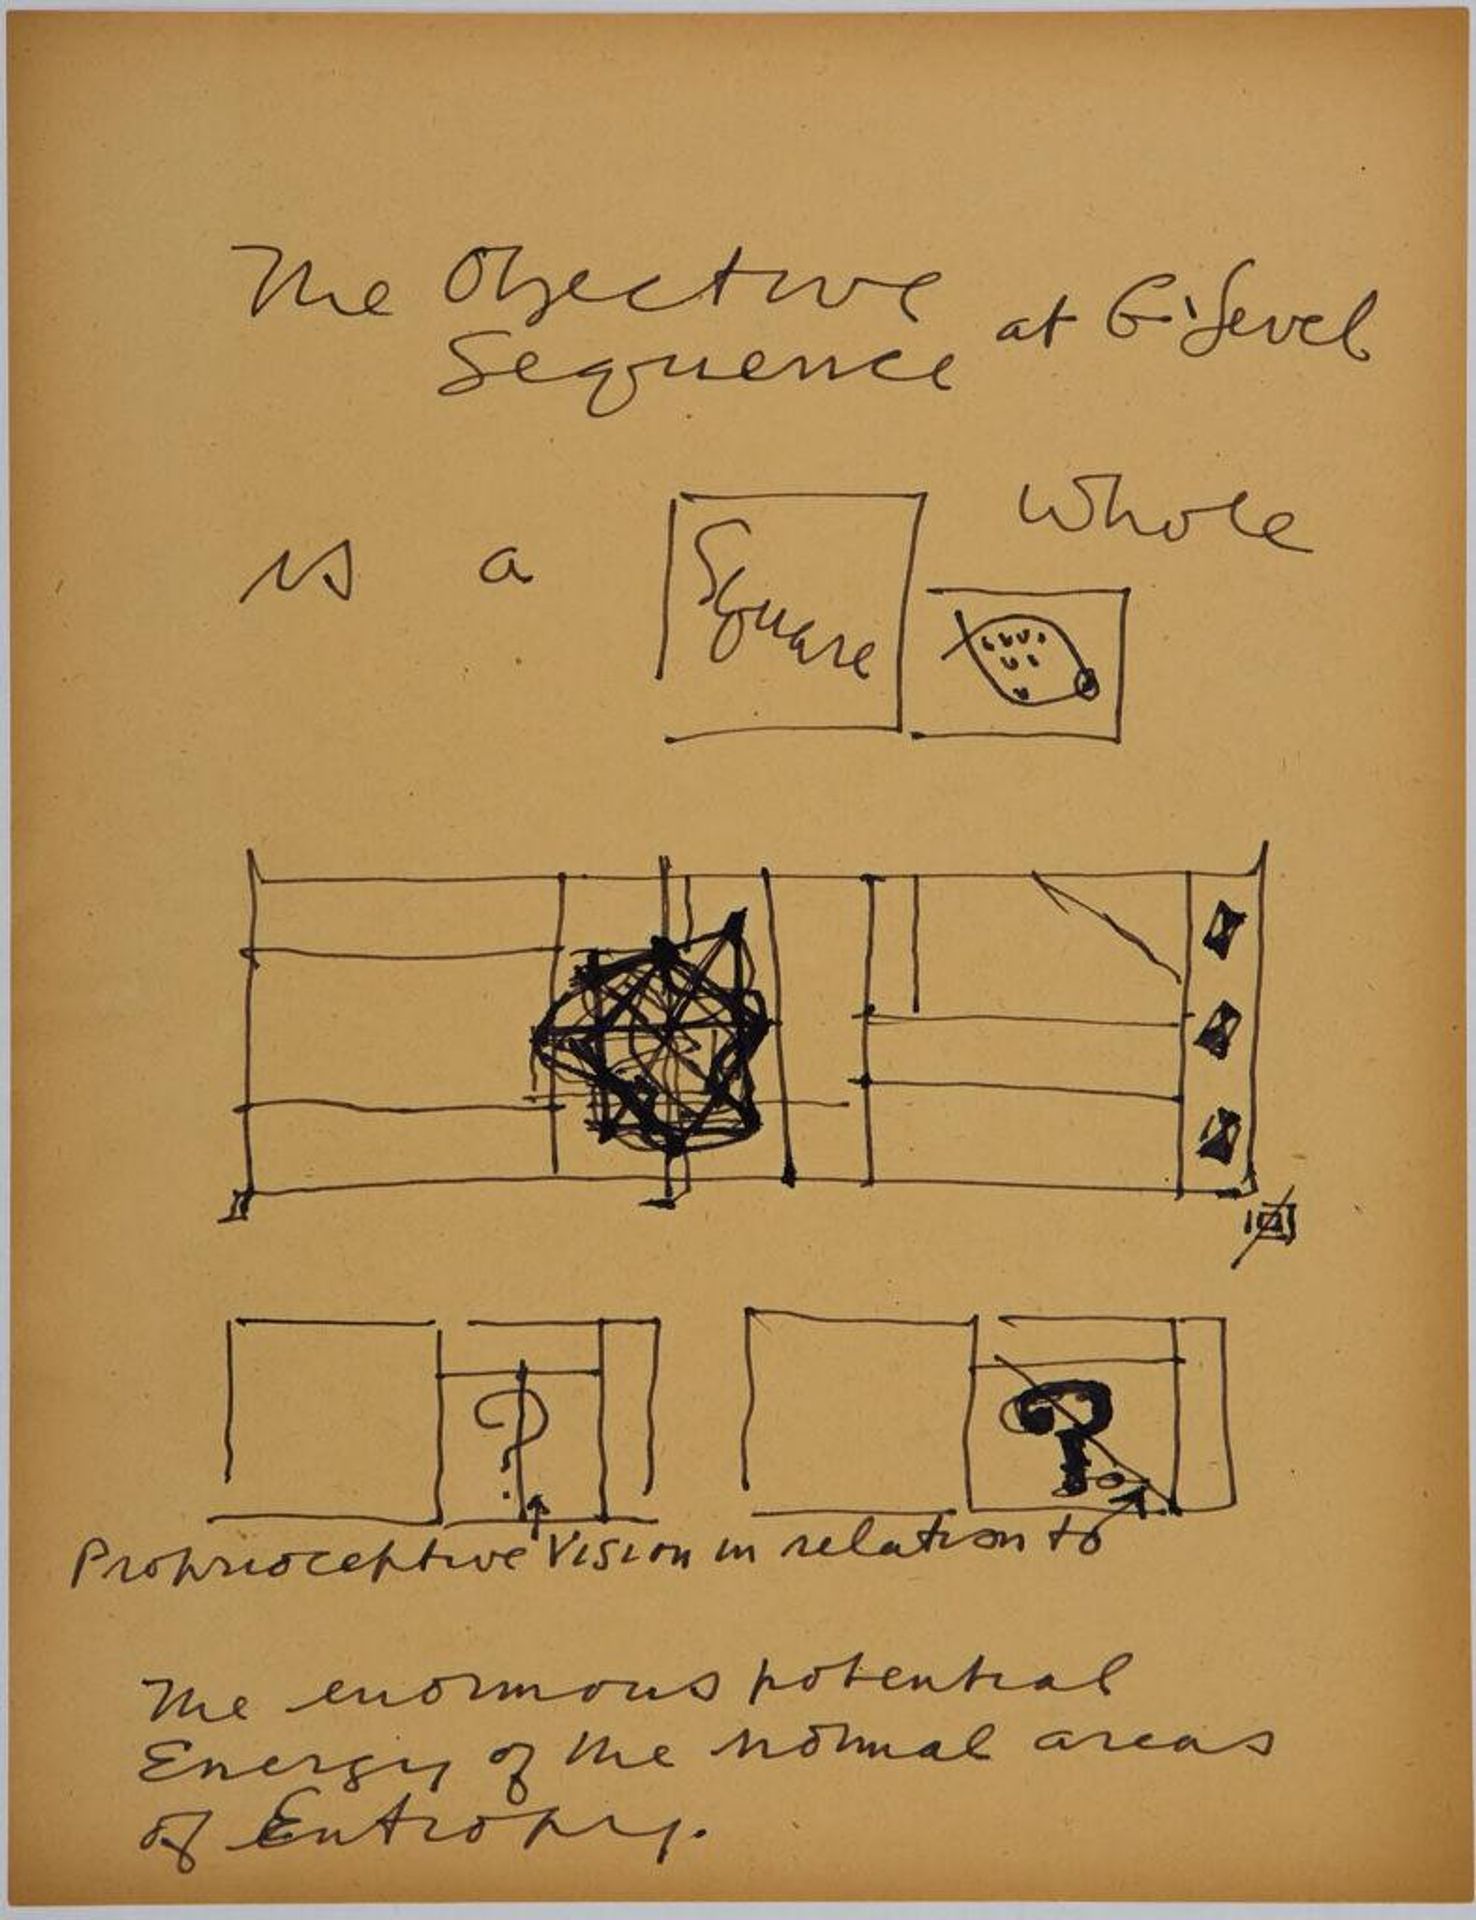 The Objective at G·level
Sequence
is a Square Whole
?
?
Proprioceptive Vision in relation to
The enormous potential
Energy of the normal areas
of Entropy.